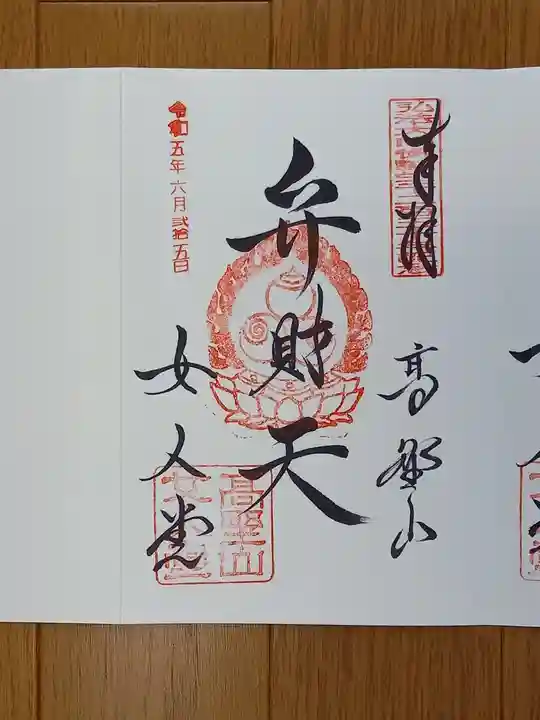 奉拝
高野山
弁財天
令和五年六月弐拾五日
女人堂
高野山
女人堂